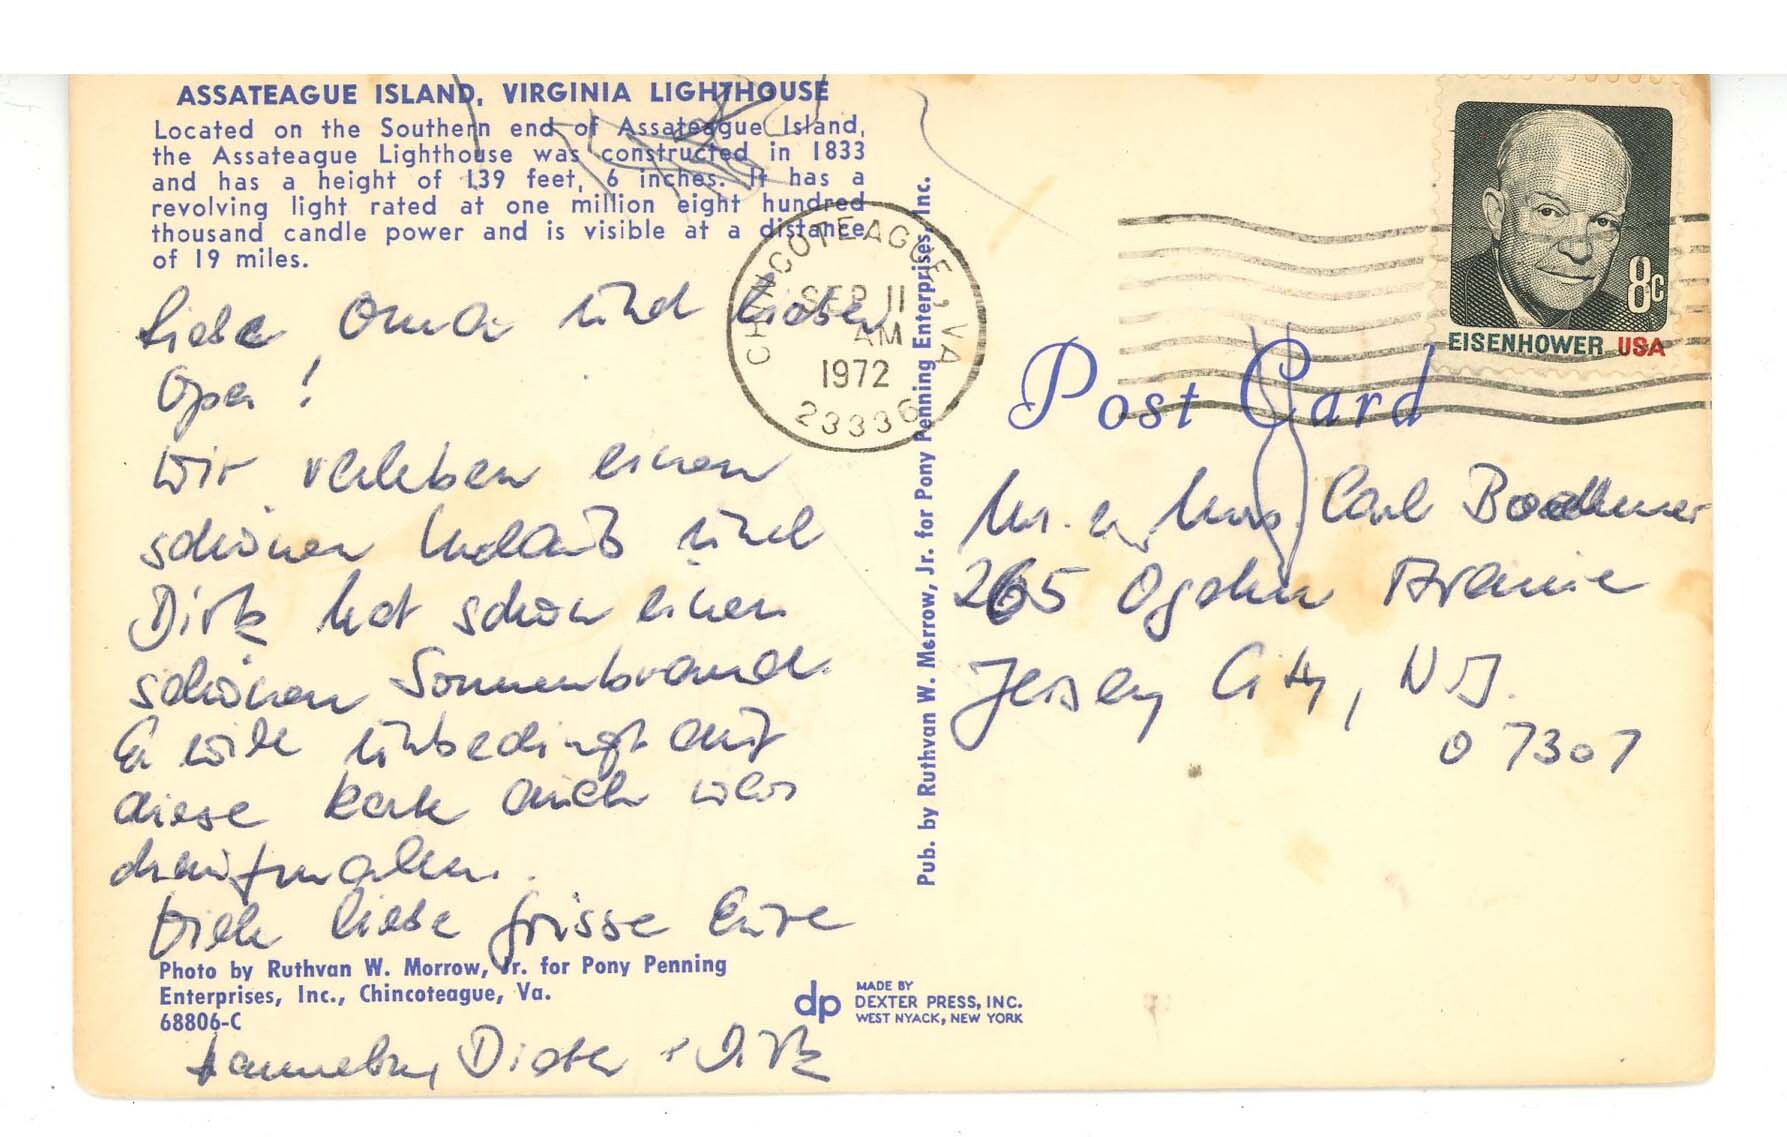 ASSATEAGUE ISLAND, VIRGINIA LIGHTHOUSE
Located on the Southern end of Assateague Island,
the Assateague Lighthouse was constructed in 1833
and has a height of 139 feet, 6 inches. It has a
revolving light rated at one million eight hundred
thousand candle power and is visible at a distance
of 19 miles.
Liebe Oma und lieber
Opa!
Wir verleben einen
schönen Urlaub und
Dirk hat schon einen
schönen Sonnenbrand.
Er will unbedingt auf
diese Karte auch was
draufmalen.
Viele liebe Grüsse Eure
Photo by Ruthvan W. Morrow, Jr. for Pony Penning
Enterprises, Inc., Chincoteague, Va.
68806-C
Hannelore, Dieter + Dirk
CHINCOTEAGUE, VA
SEP 11
AM
1972
23336
Pub. by Ruthvan W. Morrow, Jr. for Pony Penning Enterprises, Inc.
dp
MADE BY
DEXTER PRESS, INC.
WEST NYACK, NEW YORK
8c
EISENHOWER USA
Post Card
Mr. u. Mrs. Carl
265 Ogden Avenue
Jersey City, NJ.
07307